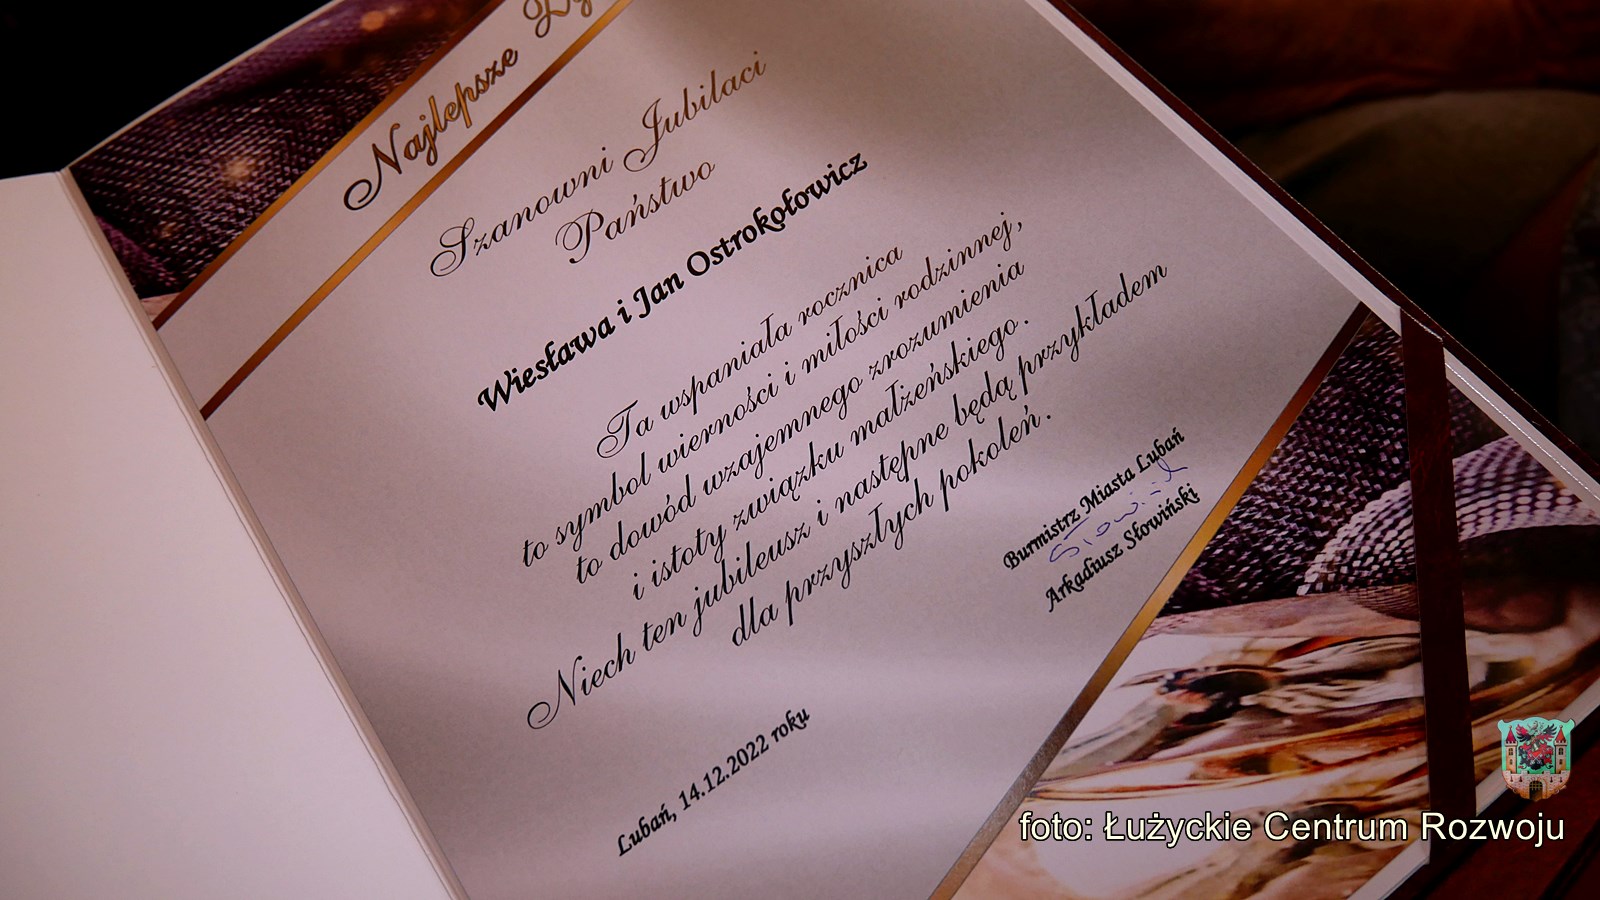 Najlepsze
Szanowni Jubilaci
Państwo
Wiesława i Jan Ostrokołowicz
Ta wspaniała rocznica
to symbol wierności i miłości rodzinnej,
to dowód wzajemnego zrozumienia
i istoty związku małżeńskiego.
Niech ten jubileusz i następne będą przykładem
dla przyszłych pokoleń.
Burmistrz Miasta Lubań
Arkadiusz Słowiński
Lubań, 14.12.2022 roku
foto: Łużyckie Centrum Rozwoju